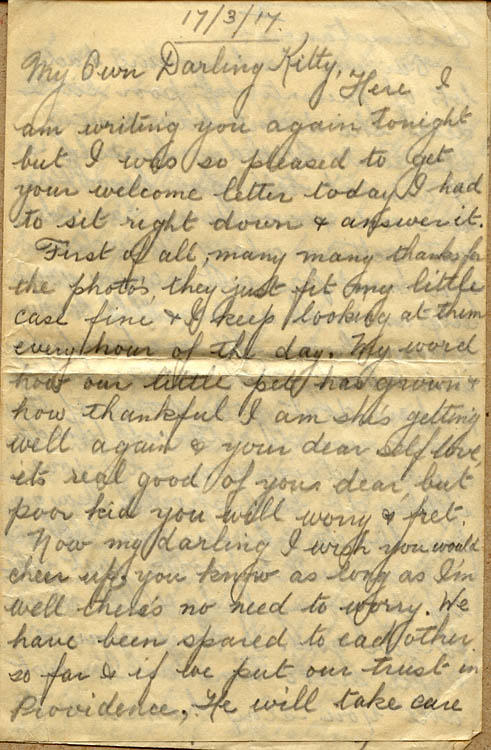 17/3/17.
My Own Darling Kitty,
Here I
am writing you again tonight
but I was so pleased to get
your welcome letter today I had
to sit right down & answer it.
First of all, many many thanks for
the photo's, they just fit my little
case fine & I keep looking at them
every hour of the day. My word
how our little pet has grown &
how thankful I am she's getting
well again & your dear self love,
it's real good of you dear, but
poor kid you will worry & fret.
Now my darling I wish you would
cheer up, you know as long as I'm
well there's no need to worry. We
have been spared to each other
so far & if we put our trust in
Providence, He will take care